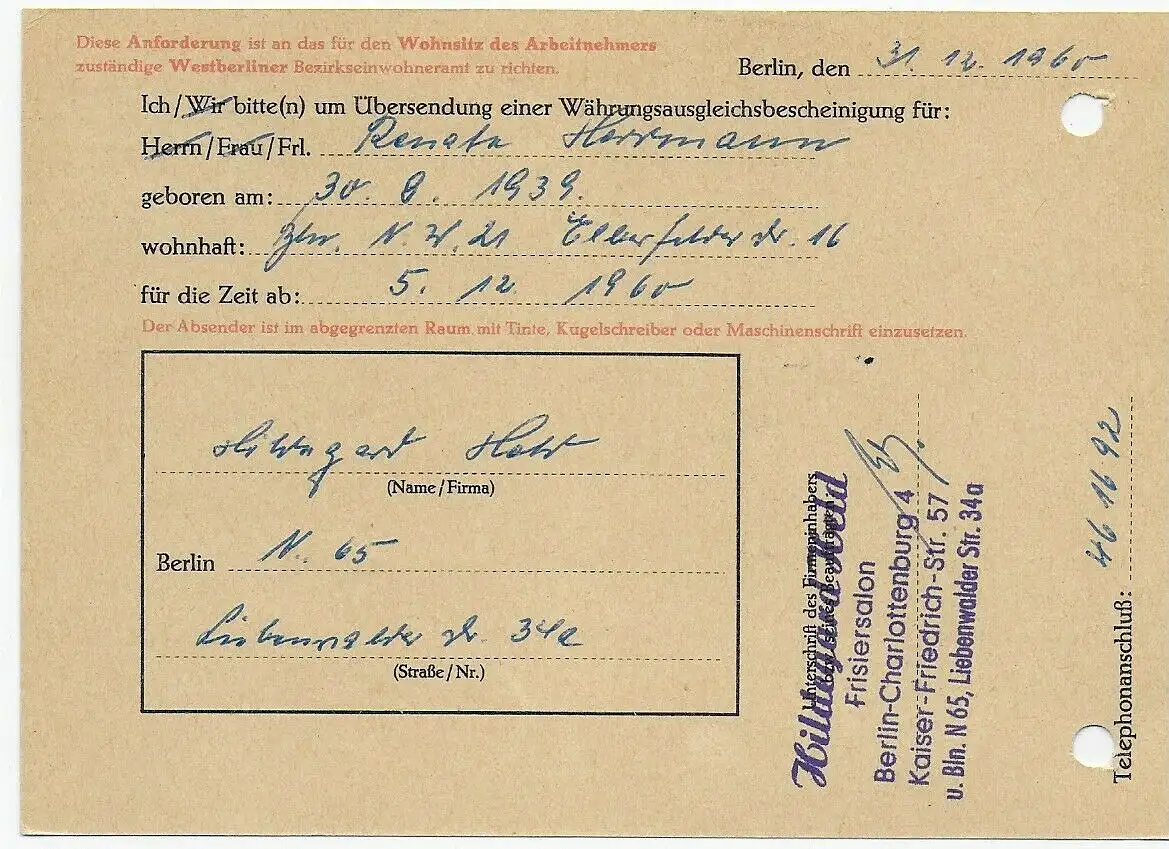 Diese Anforderung ist an das für den Wohnsitz des Arbeitnehmers
zuständige Westberliner Bezirkseinwohneramt zu richten.
Berlin, den 31. 12. 1960
Ich/Wir bitte(n) um Übersendung einer Währungsausgleichsbescheinigung für:
Herrn/Frau/Frl. Renate Herrmann
geboren am: 30. 9. 1939.
wohnhaft: Bln. N.W. 21 Elberfelder Str. 16
für die Zeit ab: 5. 12. 1960
Der Absender ist im abgegrenzten Raum mit Tinte, Kugelschreiber oder Maschinenschrift einzusetzen.
Hildegard Held
(Name/Firma)
Berlin N. 65
Liebenwalder Str. 34a
(Straße/Nr.)
Unterschrift des Firmeninhabers
oder seines Beauftragten
Hildegard Held
Frisiersalon
Berlin-Charlottenburg 4
Kaiser-Friedrich-Str. 57
u. Bln. N 65, Liebenwalder Str. 34a
Telephonanschluß: 46 16 92